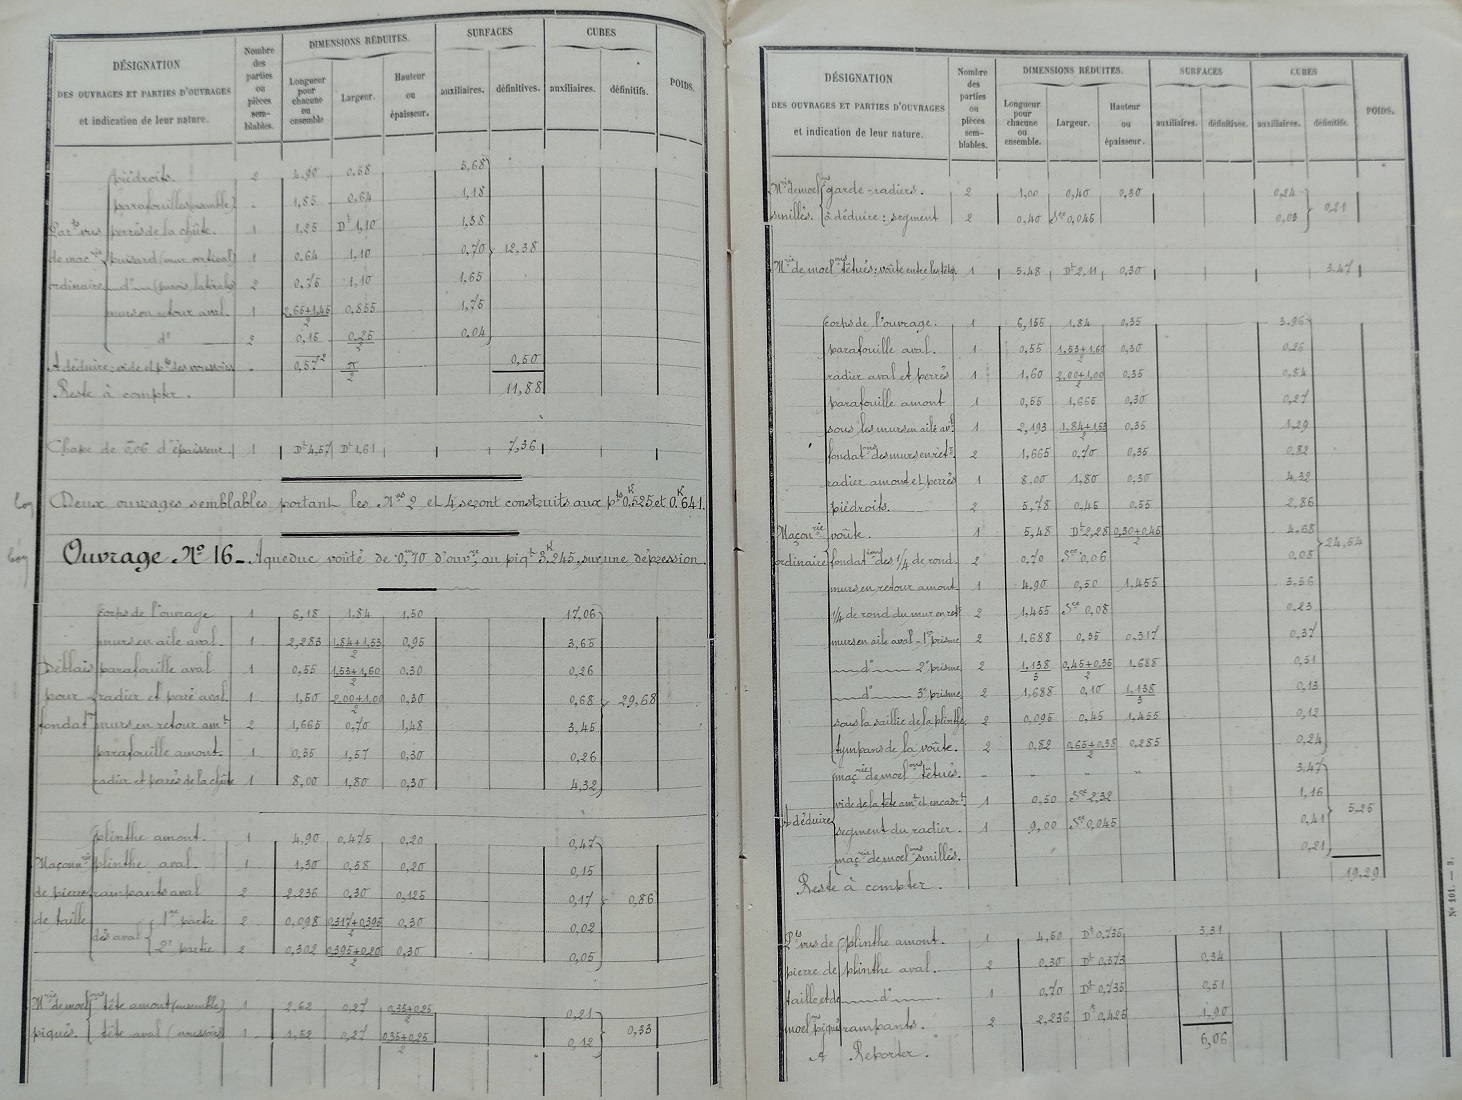 DÉSIGNATION
DES OUVRAGES ET PARTIES D'OUVRAGES
et indication de leur nature.
Nombre des parties ou pièces semblables.
DIMENSIONS RÉDUITES.
Longueur pour chacune ou ensemble
Largeur.
Hauteur ou épaisseur.
SURFACES
auxiliaires.
définitives.
CUBES
auxiliaires.
définitifs.
POIDS.
piédroits. 2 0,68 5,68
parafouilles (ensemble) 1,85 0,64 1,18
perrés de la chûte. 1 1,25 Dt 1,10 1,38
puisard (mur vertical) 1 0,64 1,10 0,70 12,38
ordinaire d° (parois latérales) 2 0,75 1,10 1,65
murs en retour aval. 1 2,65+1,45/2 0,855 1,75
d° 2 0,15 0,25/2 0,04
A déduire: vide et pon des voussoirs 0,57² π/2 0,50
Reste à compter. 11,88
Chape de 0,06 d'épaisseur. 1 Dt 4,57 Dt 1,61 7,36
Deux ouvrages semblables portant les Nos 2 et 4 seront construits aux pts 0K,525 et 0K,641.
Ouvrage No 16 - Aqueduc voûté de 0m,70 d'ouvre, au piqt 3K,245, sur une dépression.
corps de l'ouvrage 1 6,18 1,84 1,50 17,06
murs en aile aval. 1 2,283 1,84+1,53/2 0,95 3,65
Déblais parafouille aval 1 0,55 1,53+1,60/2 0,30 0,26
pour radier et paré aval. 1 1,50 2,00+1,00/2 0,30 0,68 29,68
fondaton murs en retour amt 2 1,665 0,70 1,48 3,45
parafouille amont. 1 0,55 1,57 0,30 0,26
radier et parés de la chûte 1 8,00 1,80 0,30 4,32
plinthe amont. 1 4,90 0,475 0,20 0,47
Maçonrie plinthe aval. 1 1,30 0,58 0,20 0,15
de pierre rampants aval 2 2,236 0,30 0,125 0,17 0,86
de taille dés aval 1re partie 2 0,098 0,317+0,395/2 0,30 0,02
2e partie 2 0,302 0,395+0,20/2 0,30 0,05
Mrie de moelons tête amont (ensemble) 1 2,62 0,27 0,35+0,25/2 0,21
piqués. tête aval (voussoirs) 1 1,52 0,27 0,35+0,25/2 0,12 0,33
DÉSIGNATION
DES OUVRAGES ET PARTIES D'OUVRAGES
et indication de leur nature.
Nombre des parties ou pièces semblables.
DIMENSIONS RÉDUITES.
Longueur pour chacune ou ensemble.
Largeur.
Hauteur ou épaisseur.
SURFACES
auxiliaires.
définitives.
CUBES
auxiliaires.
définitifs.
POIDS.
Mrie de moelons garde-radiers. 2 1,00 0,40 0,30 0,24
smillés. à déduire: segment 2 0,40 Sce 0,045 0,03 0,21
Mrie de moelons têtués: voûte entre les têtes 1 5,48 Dt 2,11 0,30 3,47
corps de l'ouvrage. 1 6,155 1,84 0,35 3,96
parafouille aval. 1 0,55 1,53+1,60/2 0,30 0,26
radier aval et perrés 1 1,60 2,00+1,00/2 0,35 0,84
parafouille amont 1 0,55 1,665 0,30 0,27
sous les murs en aile avl 1 2,193 1,84+1,53/2 0,35 1,29
fondations des murs en rett 2 1,665 0,70 0,35 0,82
radier amont et perrés 1 8,00 1,80 0,30 4,32
piédroits. 2 5,78 0,45 0,55 2,86
Maçonrie voûte. 1 5,48 Dt 2,28 0,30+0,45/2 4,68 24,54
ordinaire fondations des 1/4 de rond. 2 0,70 Sce 0,06 0,08
murs en retour amont. 1 4,90 0,50 1,455 3,56
1/4 de rond du mur en ret 2 1,455 Sce 0,08 0,23
murs en aile aval - 1er prisme 2 1,688 0,35 0,317 0,37
d° 2e prisme 2 1,138/3 0,45+0,35/2 1,688 0,51
d° 3e prisme 2 1,688 0,10 1,138/3 0,13
sous la saillie de la plinthe 2 0,095 0,45 1,455 0,12
tympans de la voûte. 2 0,82 0,65+0,38/2 0,285 0,24
maçrie de moelons têtués. - - - - 3,47
vide de la tête amt et encadt 1 0,50 Sce 2,32 1,16
A déduire segment du radier. 1 9,00 Sce 0,045 0,41 5,25
maçrie de moelons smillés. 0,21
Reste à compter. 19,29
Pts vus de plinthe amont. 1 4,50 Dt 0,735 3,31
pierre de plinthe aval. 2 0,30 Dt 0,573 0,34
taille et de d° 1 0,70 Dt 0,735 0,51
moelon piqué rampants. 2 2,236 Dt 0,425 1,90
A Reporter. 6,06
N° 101. — 3.